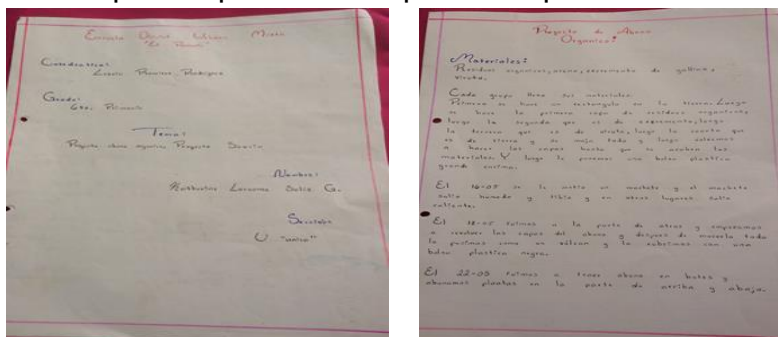 Escuela Oficial Urbana Mixta
"El
Catedrática:
Grado:
6to. Primaria
Tema:
Proyecto abono orgánico, Proyecto
Nombre:
Katherine
Sección
U "única"
Proyecto de Abono
Organico:
Materiales:
Residuos organicos, arena, excremento de gallina,
viruta.
Cada grupo llevo sus materiales.
Primero se hace un rectangulo en la tierra. Luego
se hace la primera capa de residuos organicos,
luego la segunda que es de excremento, luego
la tercera que es de viruta, luego la cuarta que
es de tierra y se moja todo y luego volvemos
a hacer las capas hasta que se acaben los
materiales. Y luego le ponemos una bolsa plastica
grande encima.
El 16-05 se le metio un machete y el machete
salio humedo y tibio y en otros lugares salio
caliente.
El 18-05 fuimos a la parte de atras y empezamos
a revolver las capas del abono y despues de mezclar todo
lo pusimos como un volcan y lo cubrimos con una
bolsa plastica negra.
El 22-05 fuimos a traer abono en botes y
abonamos plantas en la parte de arriba y abajo.